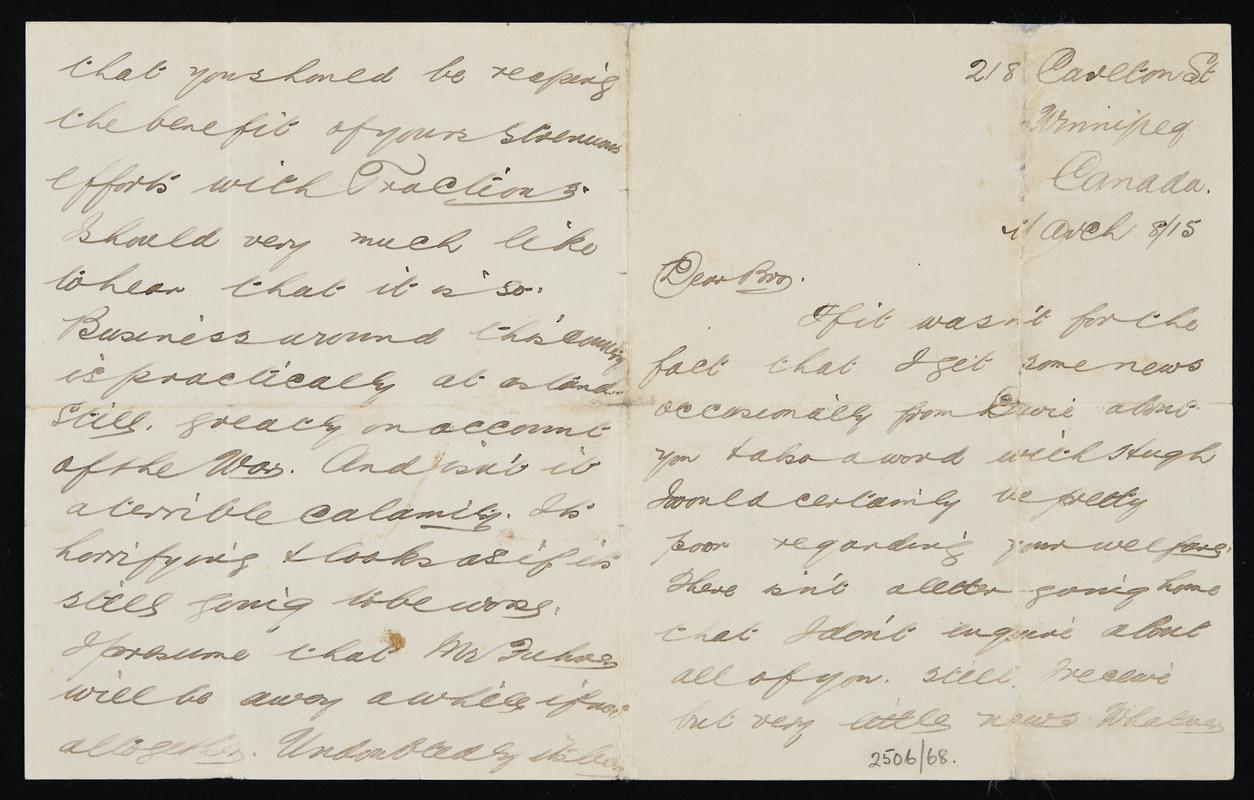 218 Carlton St
Winnipeg
Canada.
March 8/15
Dear Bro.
If it wasn't for the
fact that I get some news
occasionally from about
you & also a word with Hugh
I would certainly be pretty
poor regarding your welfare.
There isn't a letter going home
that I don't enquire about
all of you. still I receive
but very little news. Whatever
2506/68.
that you should be reaping
the benefit of yours strenuous
efforts with Tractions.
I should very much like
to hear that it is so.
Business around this country
is practically at a stand
still. greatly on account
of the War. And isn't it
a terrible calamity. Its
horrifying & looks as if its
still going to be worse.
I presume that Mr
will be away a while if not
altogether. Undoubtedly its